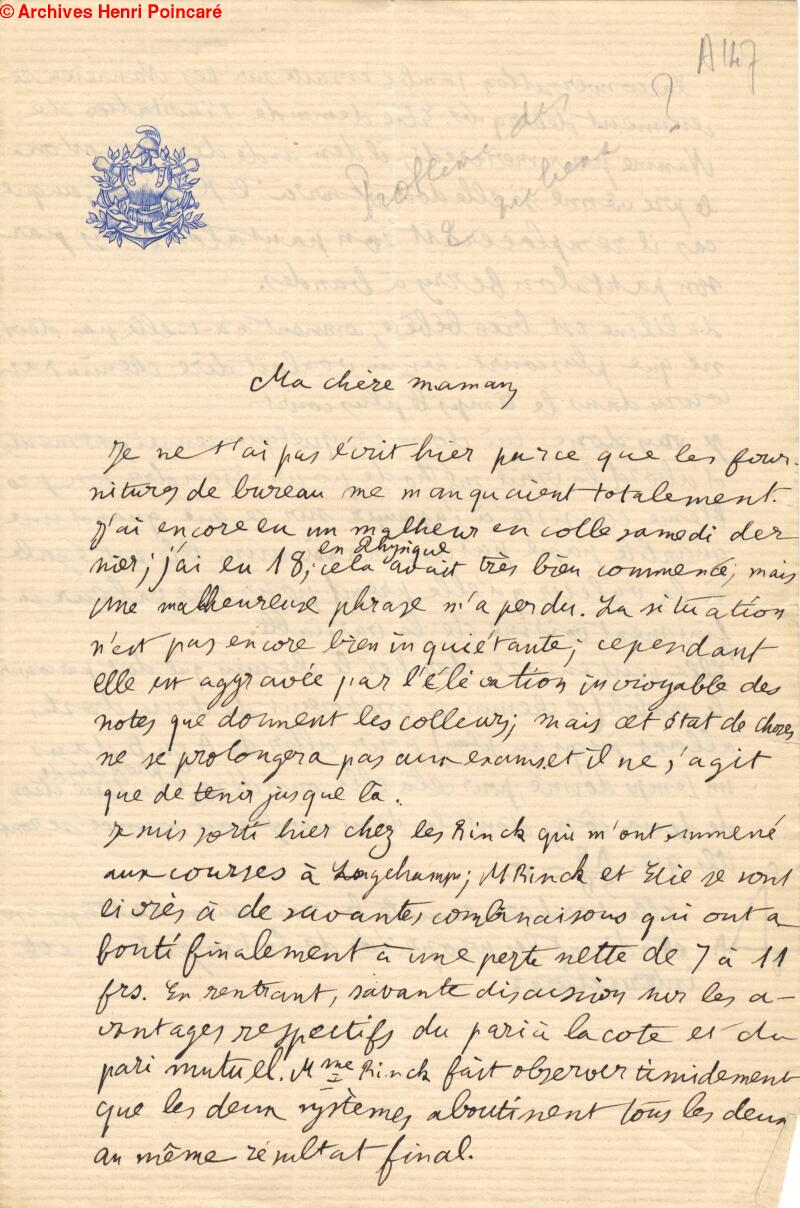 © Archives Henri Poincaré
A147
Problème des ?
qui
Ma chère maman,
Je ne t'ai pas écrit hier parce que les four-
nitures de bureau me manquaient totalement.
J'ai encore eu un malheur en colle samedi der
nier; j'ai eu 18; en Physique cela avait très bien commencé; mais
une malheureuse phrase m'a perdu. La situation
n'est pas encore bien inquiétante; cependant
elle est aggravée par l'élévation incroyable des
notes que donnent les colleurs; mais cet état de choses
ne se prolongera pas aux exams. et il ne s'agit
que de tenir jusque là.
Je suis sorti hier chez les Rinck qui m'ont emmené
aux courses à Longchamps; M Rinck et Elie se sont
livrés à de savantes combinaisons qui ont a
bouti finalement à une perte nette de 7 à 11
frs. En rentrant, savante discussion sur les a-
vantages respectifs du pari à la cote et du
pari mutuel. Mme Rinck fait observer timidement
que les deux systèmes aboutissent tous les deux
au même résultat final.